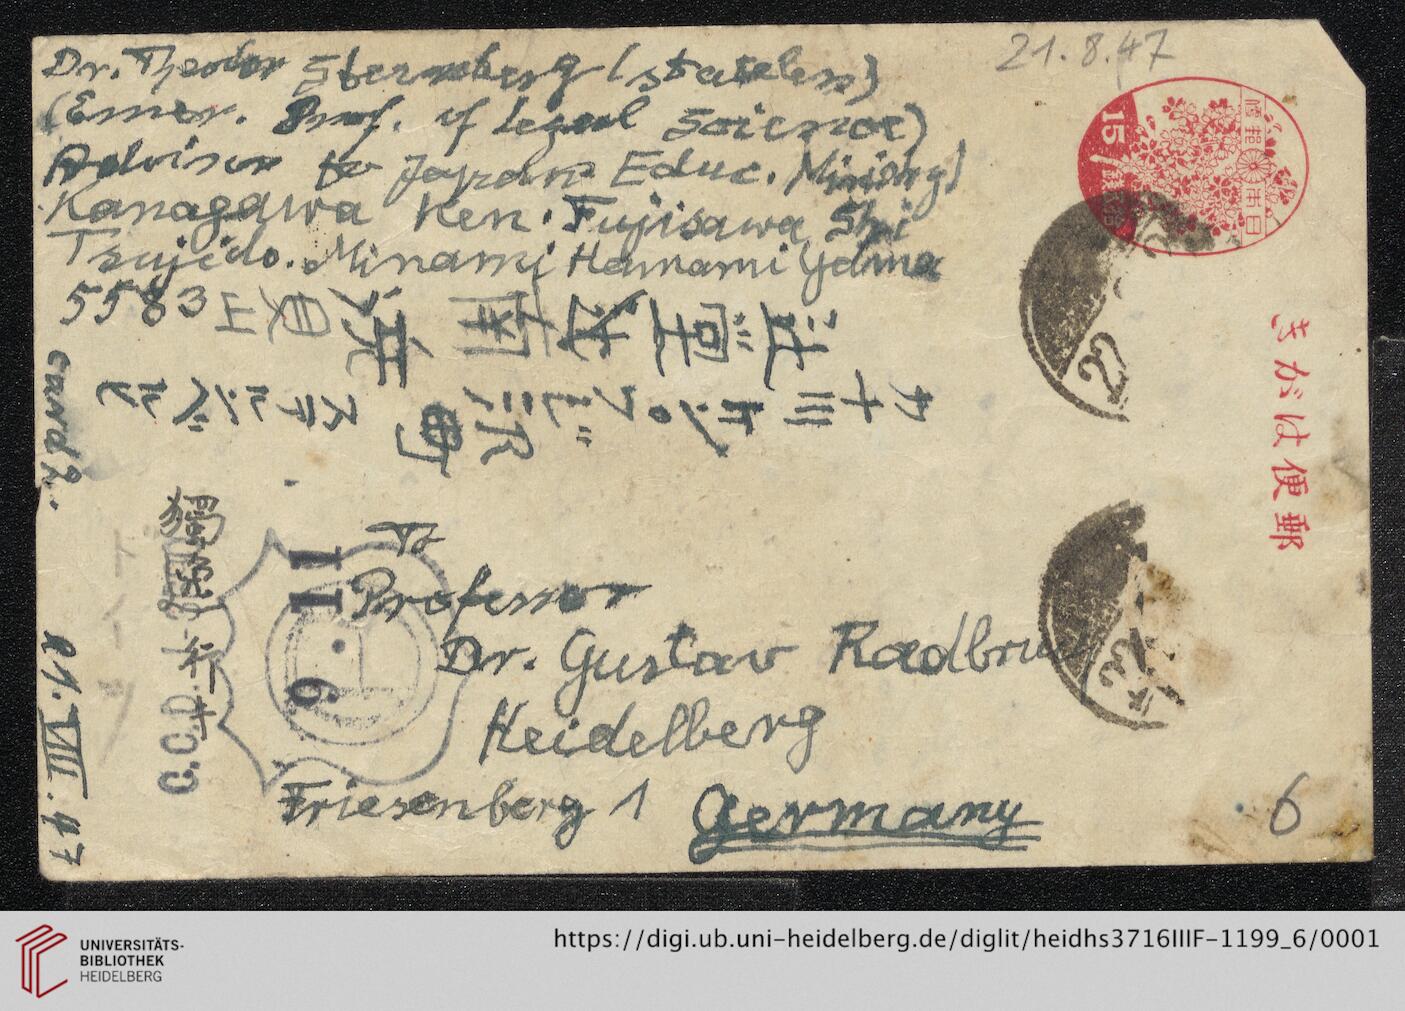 21.8.47
Dr. Theodor Sternberg (stateless)
(Emer. Prof. of Legal Science)
Advisor to Japan Educ. Ministry)
Kanagawa Ken. Fujisawa Shi
Tsujido. Minami Hamami Yama
5583
カナ川ケン
フジ沢
辻堂
南
ステルンベルヒ
card 2.
21.VIII.47
日本帝国
15
郵便はがき
22
22
獨
ドイツ
C.C.D.
11
11
9
To
Professor
Dr. Gustav Radbruch
Heidelberg
Friesenberg 1 Germany
6
UNIVERSITÄTS-
BIBLIOTHEK
HEIDELBERG
https://digi.ub.uni-heidelberg.de/diglit/heidhs3716IIIF-1199_6/0001